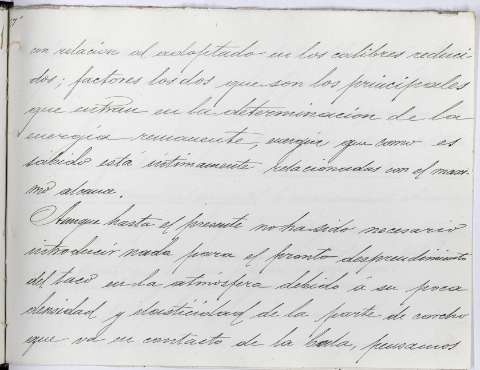 con relación al adoptado en los calibres reduci-
dos; factores los dos que son los principales
que entran en la determinación de la
energia remanente, energia que como es
sabido está intimamente relacionadas con el maxi-
mo alcance.
Aunque hasta el presente no ha sido necesario
introducir nada para el pronto desprendimiento
del taco en la atmósfera debido á su poca
densidad y elasticidad de la parte de corcho
que va en contacto de la bala, pensamos